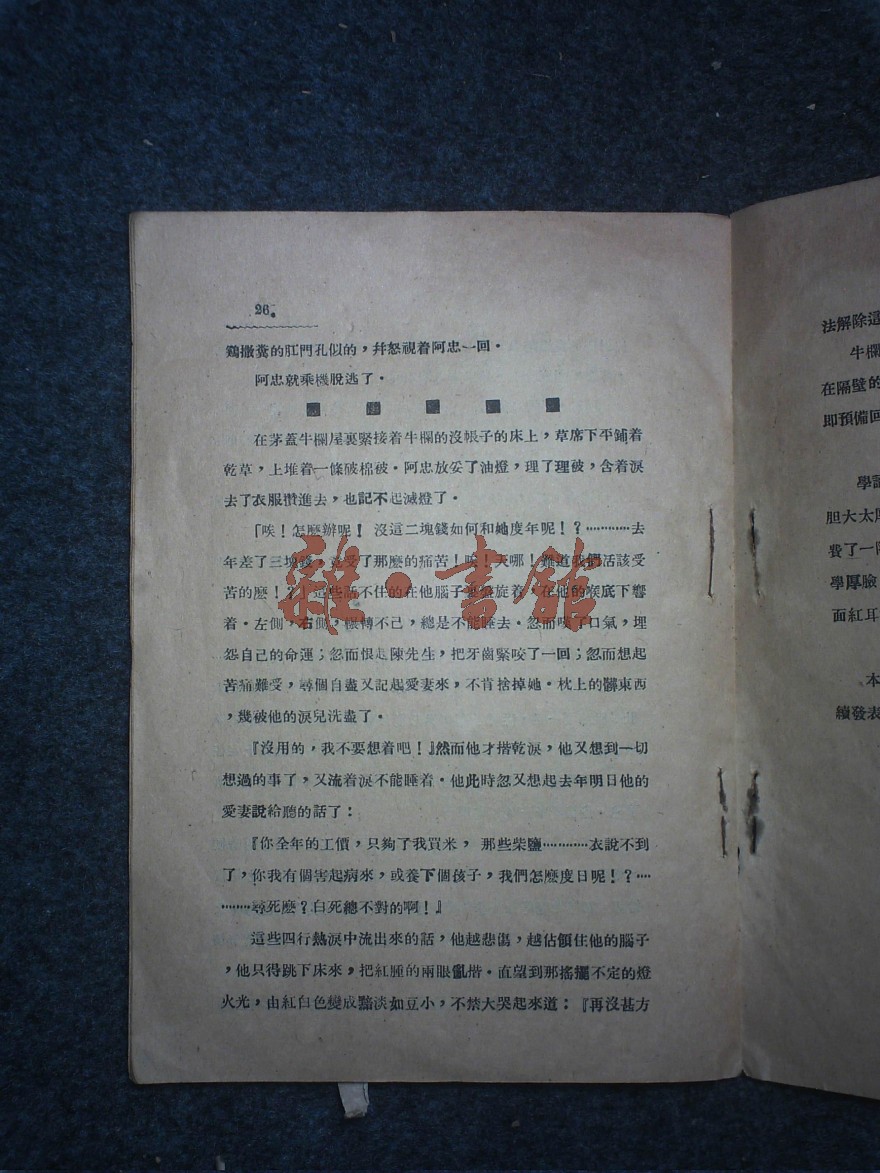 26.
鷄撒糞的肛門孔似的，幷怒視着阿忠一回．
阿忠就乘機脫逃了．
在茅蓋牛欄屋裏緊接着牛欄的沒帳子的床上，草席下平鋪着
乾草，上堆着一條破棉被．阿忠放妥了油燈，理了理被，含着淚
去了衣服攢進去，也記不起滅燈了．
「唉！怎麽辦呢！沒這二塊錢如何和她度年呢！？…………去
年差了三塊錢，竟受了那麽的痛苦！唉！天哪！難道我們活該受
苦的麽！？」這些話不住的在他腦子裏盤旋着，在他的喉底下響
着．左側，右側，輾轉不已，總是不能睡去．忽而嘆了口氣，埋
怨自己的命運；忽而恨起陳先生，把牙齒緊咬了一回；忽而想起
苦痛難受，尋個自盡又記起愛妻來，不肯捨掉她．枕上的髒東西
，幾被他的淚兒洗盡了．
『沒用的，我不要想着吧！』然而他才揩乾淚，他又想到一切
想過的事了，又流着淚不能睡着．他此時忽又想起去年明日他的
愛妻說給聽的話了：
『你全年的工價，只夠了我買米，那些柴鹽…………衣說不到
了，你我有個害起病來，或養下個孩子，我們怎麽度日呢！？…
………尋死麽？白死總不對的啊！』
這些四行熱淚中流出來的話，他越悲傷，越佔領住他的腦子
，他只得跳下床來，把紅腫的兩眼亂揩．直望到那搖擺不定的燈
火光，由紅白色變成黯淡如豆小，不禁大哭起來道：『再沒甚方
法解除這
牛欄
在隔壁的
卽預備回
學
胆大太
費了一
學厚臉
面紅耳
本
續發表
雜·書館